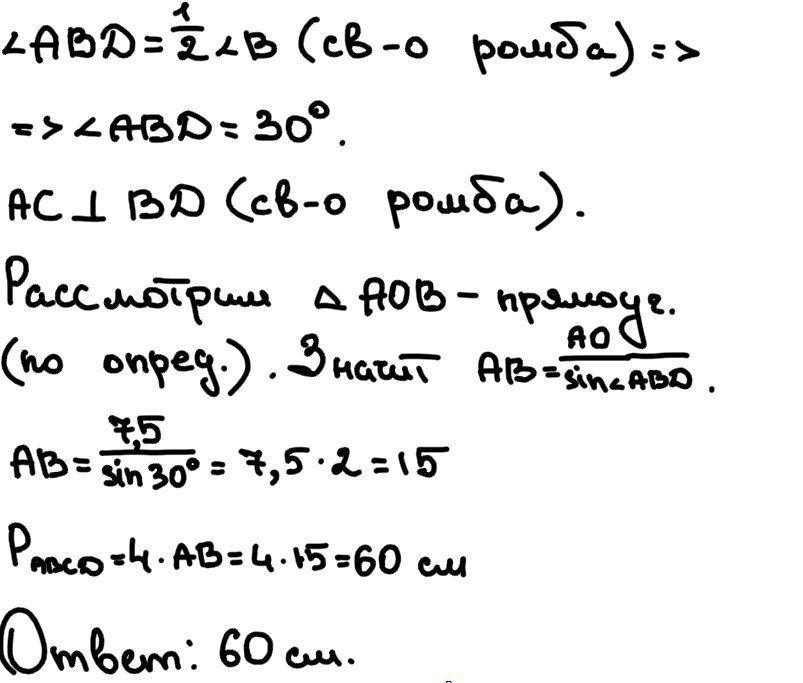 ∠ABD = 1/2 ∠B (св-о ромба) =>
=> ∠ABD = 30°.
AC ⊥ BD (св-о ромба).
Рассмотрим △ AOB - прямоуг.
(по опред.). Значит AB = AO/sin∠ABD.
AB = 7,5/sin 30° = 7,5 · 2 = 15
P_ABCD = 4 · AB = 4 · 15 = 60 см
Ответ: 60 см.